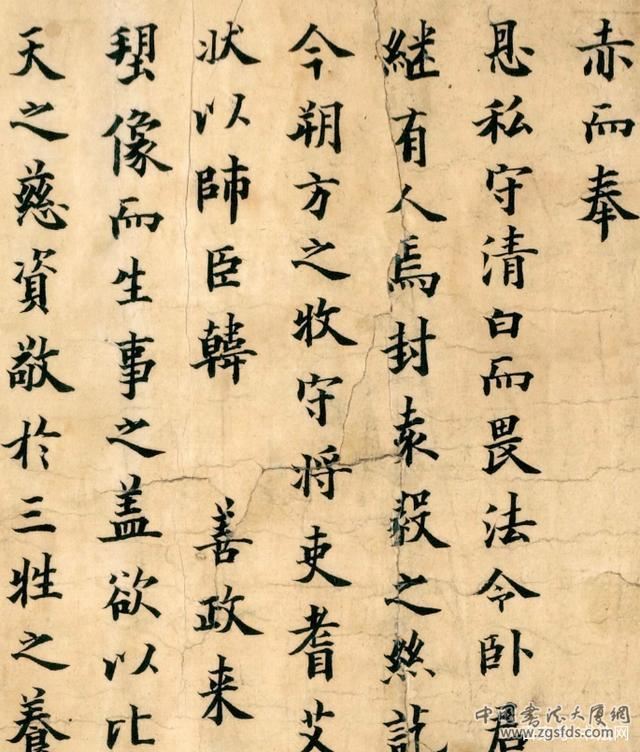 赤而奉
恩私守清白而畏法令卧
継有人焉封袁毅之絲
今朔方之牧守将吏耆艾
状以師臣韓 善政来
塑像而生事之盖欲以比
天之慈資敬於三牲之養
中国書法大厦網
www.zgsfds.com